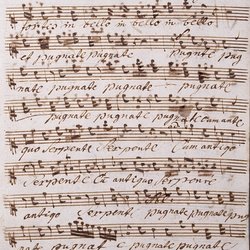 fortes in bello in bello in bello
et pugnate pugnate pugnate pug
nate pugnate pugnate pugnate
pugnate pugnate pugnate cum anti
quo serpente serpente Cum antiquo
serpente Et antiquo serpente
antiqo serpente pugnate pugnate pug
nate pugnate pugnate pugnate